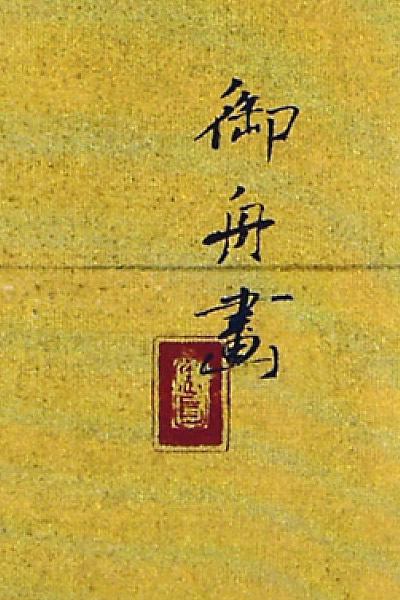 御舟畫